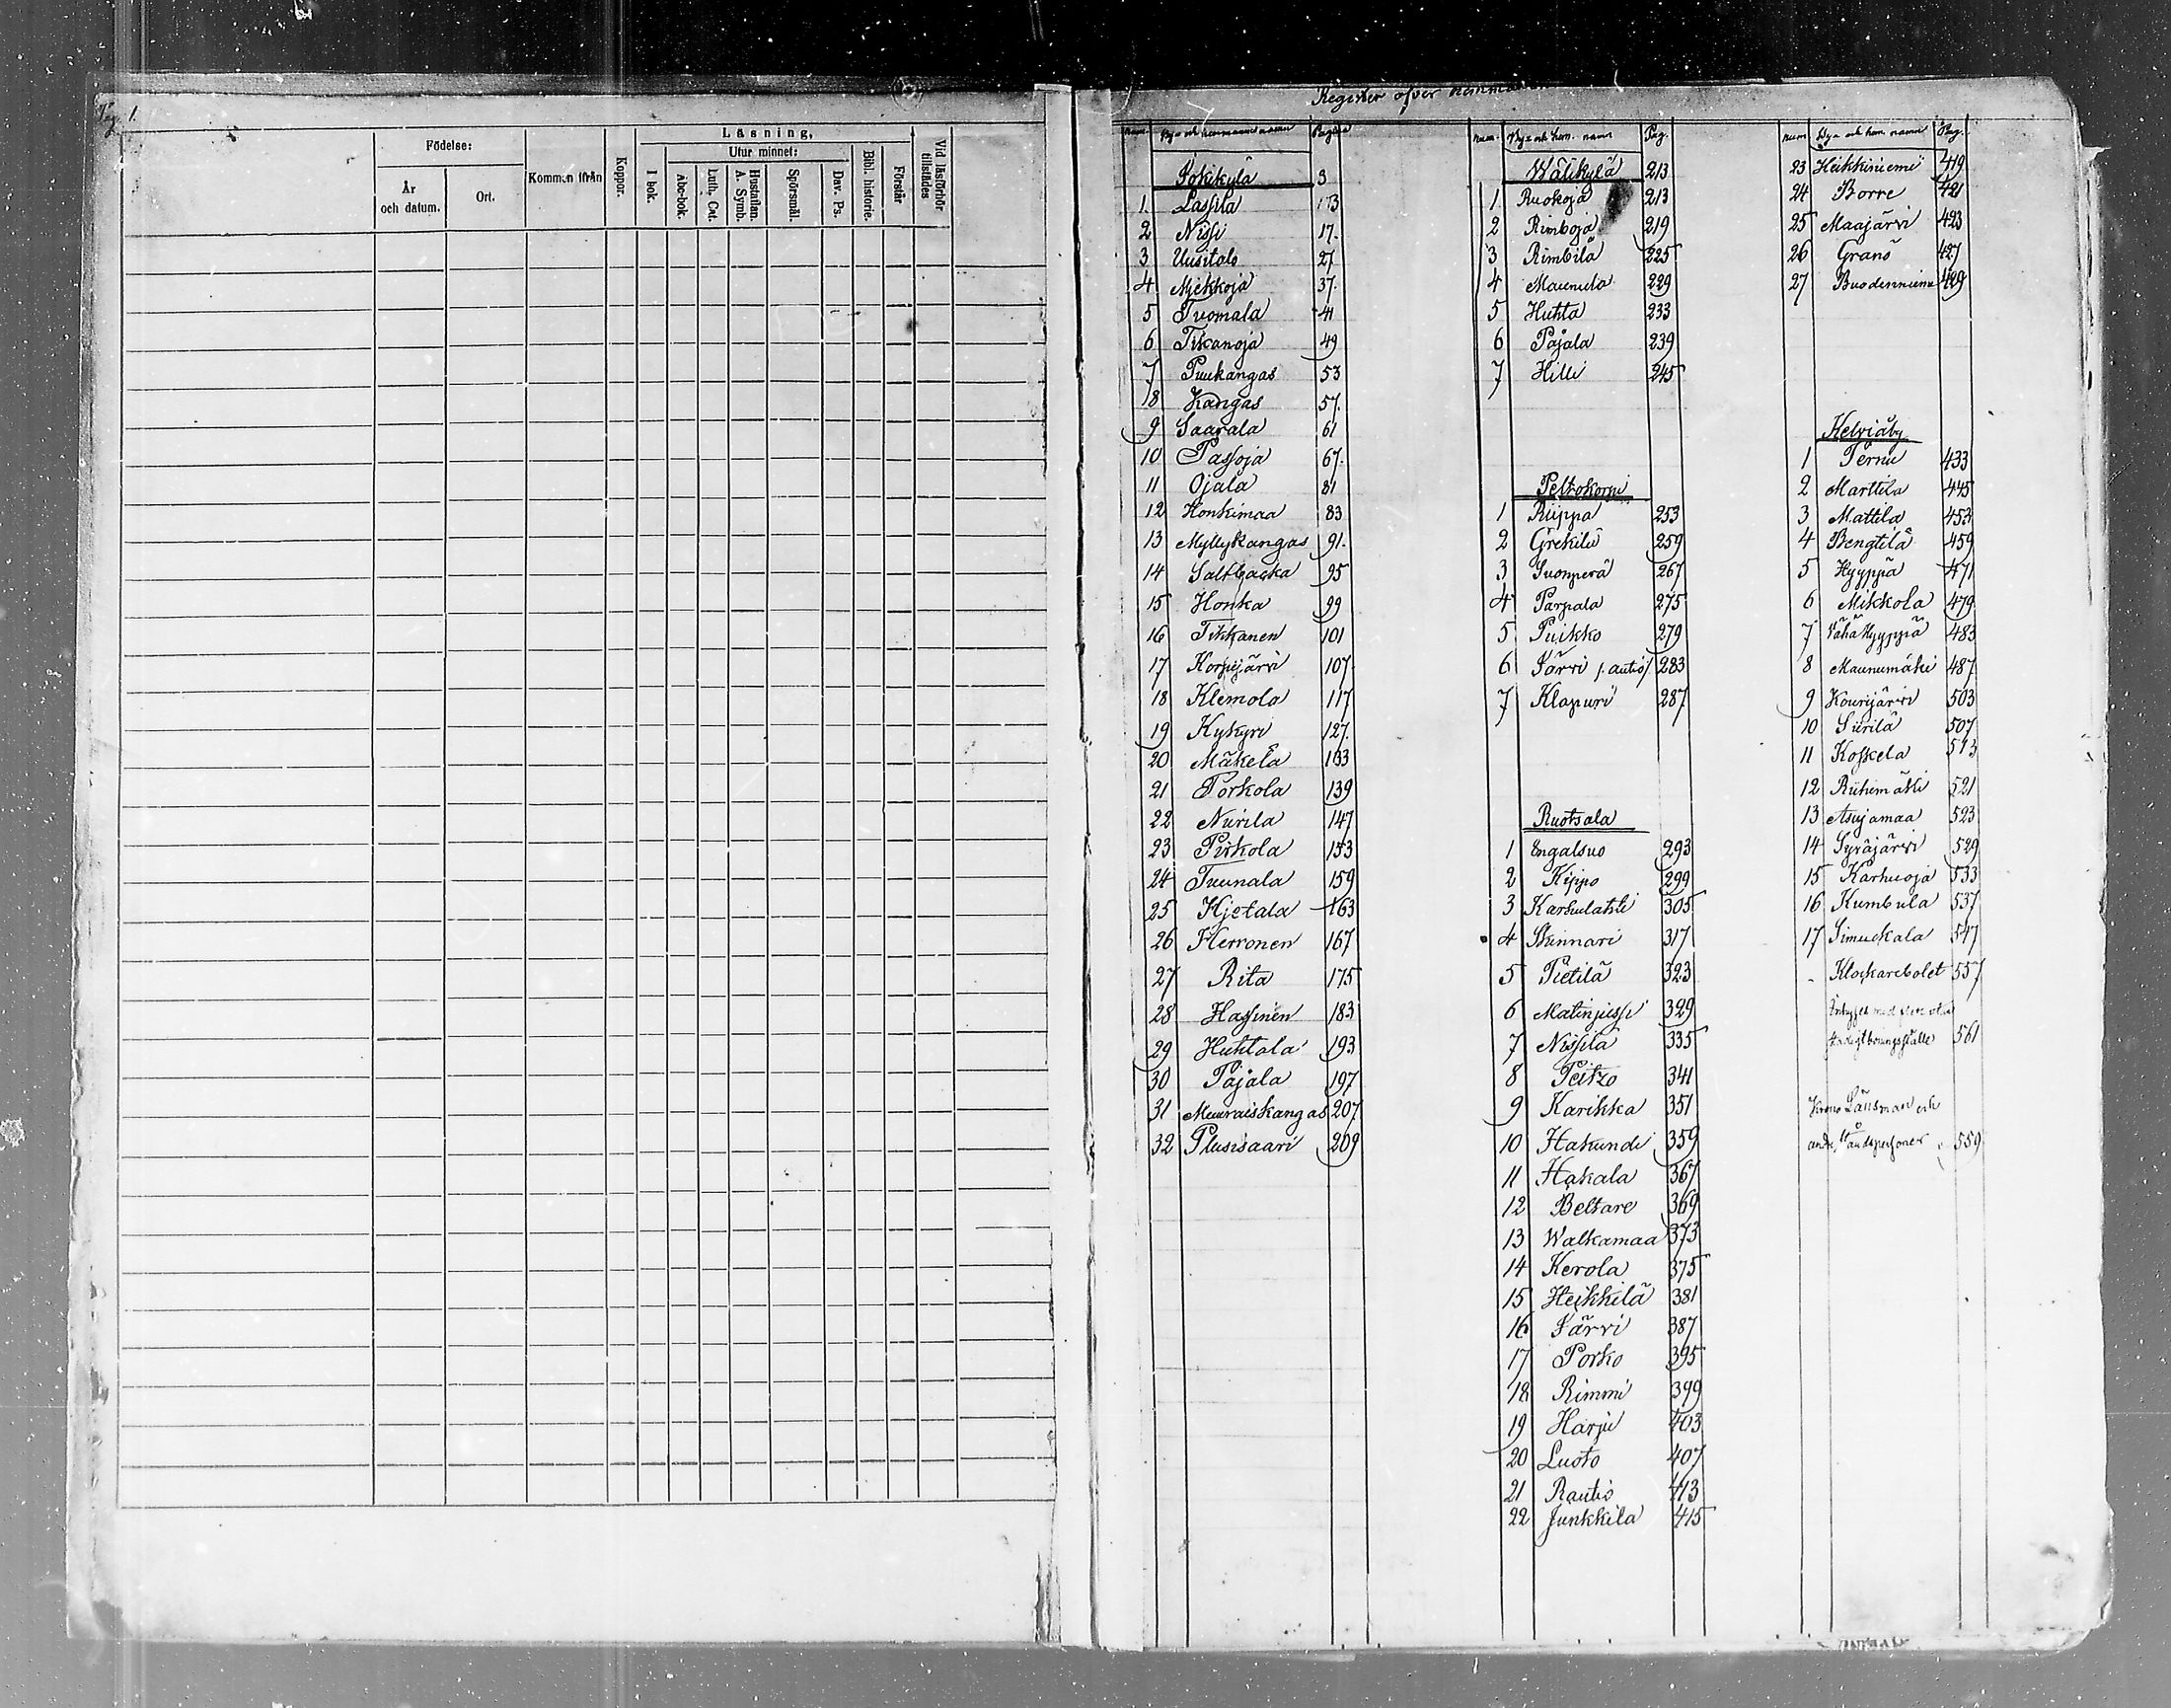 Pag. 1.
Födelse:
År och datum.
Ort.
Kommen ifrån
Koppor.
Läsning,
I bok.
Utur minnet:
Abc-bok.
Luth. Cat.
Hustaflan. A. Symb.
Spörsmål.
Dav. Ps.
Bibl. historie.
Förstår
Vid läsförhör tillstädes
Register öfver
Num. By- och hemmans namn Pagina
Jokikylä 3
1. Lassila 3
2 Nissi 17.
3 Uusitalo 27
4 Njekkoja 37.
5 Tuomala 41
6 Tikanoja 49
7 Puukangas 53
8 Kangas 57.
9 Saarala 61
10 Passoja 67.
11 Ojala 81
12 Honkimaa 83
13 Myllykangas 91.
14 Saltbacka 95
15 Honka 99
16 Tikkanen 101
17 Korpijärvi 107
18 Klemola 117
19 Kykyri 127.
20 Mäkelä 133
21 Porkola 139
22 Niirila 147
23 Pirkola 153
24 Tuunala 159
25 Hjetala 163
26 Herronen 167
27 Rita 175
28 Hassinen 183
29 Huhtala 193
30 Pajala 197
31 Muuraiskangas 207
32 Plusisaari 209
Num. By- och hem. namn Pag.
Wälikylä 213
1. Ruokoja 213
2 Rimboja 219
3 Rimbilä 225
4 Maunula 229
5 Huhta 233
6 Pajala 239
7 Hilli 245
Peltokorpi
1 Riippa 253
2 Grekilä 259
3 Suonperä 267
4 Parpala 275
5 Puikko 279
6 Järvi /: autio/ 283
7 Klapuri 287
Ruotsala
1 Engalsuo 293
2 Kippo 299
3 Karhulahti 305
4 Skinnari 317
5 Pietilä 323
6 Matinjussi 329
7 Nissilä 335
8 Peitzo 341
9 Karikka 351
10 Hakunde 359
11 Hakala 367
12 Beltare 369
13 Walkamaa 373
14 Kerola 375
15 Heikkilä 381
16 Järvi 387
17 Porko 395
18 Rimmi 399
19 Harju 403
20 Luoto 407
21 Rautio 413
22 Junkkila 415
num By- och hem. namn Pag.
23 Heikkiniemi 419
24 Borre 421
25 Maajärvi 423
26 Granö 427
27 429
Kelviåby
1 Pernu 433
2 Marttila 445
3 Mattila 453
4 Bengtilä 459
5 Hyyppä 471
6 Mikkola 479
7 Vähä Hyyppä 483
8 Maunumäki 487
9 Kourijärvi 503
10 Siirilä 507
11 Koskela 513
12 Riihimäki 521
13 Asujamaa 523
14 Syräjärvi 529
15 Karhuoja 533
16 Kumbula 537
17 Simuckala 547
- Klockarebolet 557
561
Krono Länsman och
andr. Ståndspersoner 559